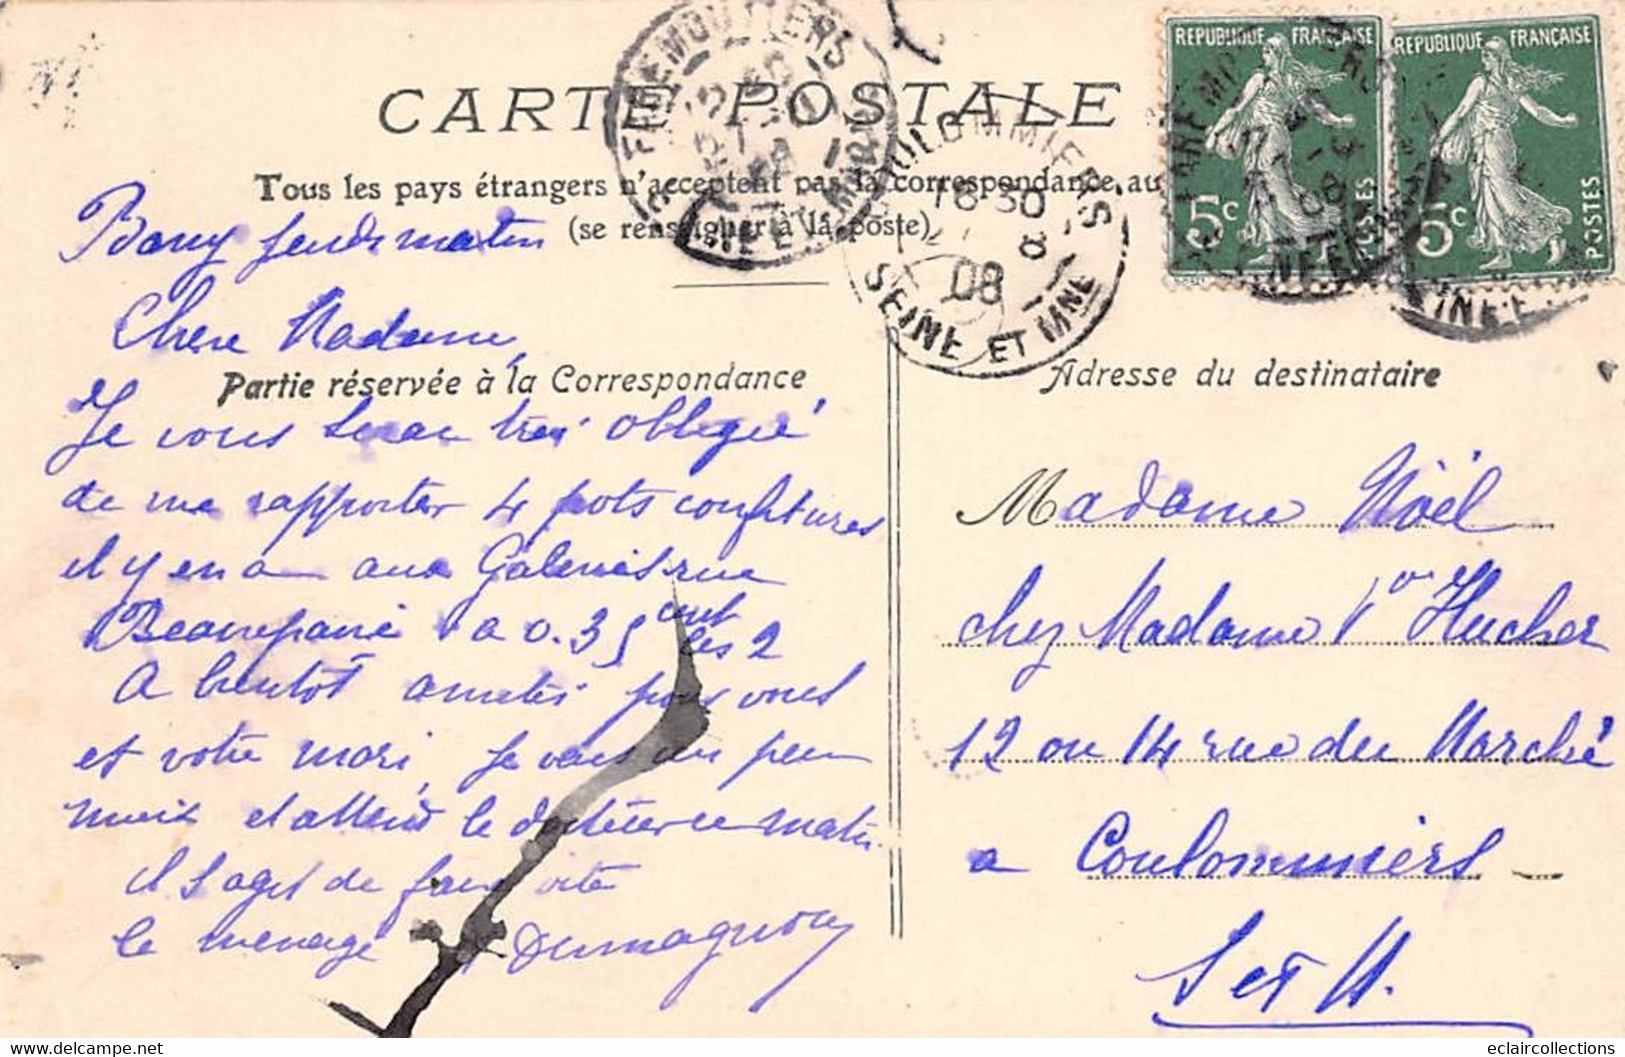 CARTE POSTALE
Tous les pays étrangers n'acceptent pas la correspondance au
(se renseigner à la poste)
jeudi matin
Chère Madame,
Partie réservée à la Correspondance
Je vous serai très obligé
de me rapporter 4 pots confitures
il y en a aux Galeries rue
Beaurepaire à 0.35 cent les 2
A bientôt amitiés pour vous
et votre mari, Je vais un peu
mieux et attend le docteur ce matin
il s'agit de faire vite
le ménage Dumagnou
Adresse du destinataire
Madame Nöel
chez Madame Vve Hucher
12 ou 14 rue du Marché
a Coulommiers
S et M.
REPUBLIQUE FRANÇAISE
5c
POSTES
REPUBLIQUE FRANÇAISE
5c
POSTES
FAREMOUTIERS
SEINE ET MARNE
COULOMMIERS
18 30
8
08
SEINE ET MNE
www.delcampe.net
eclaircollections